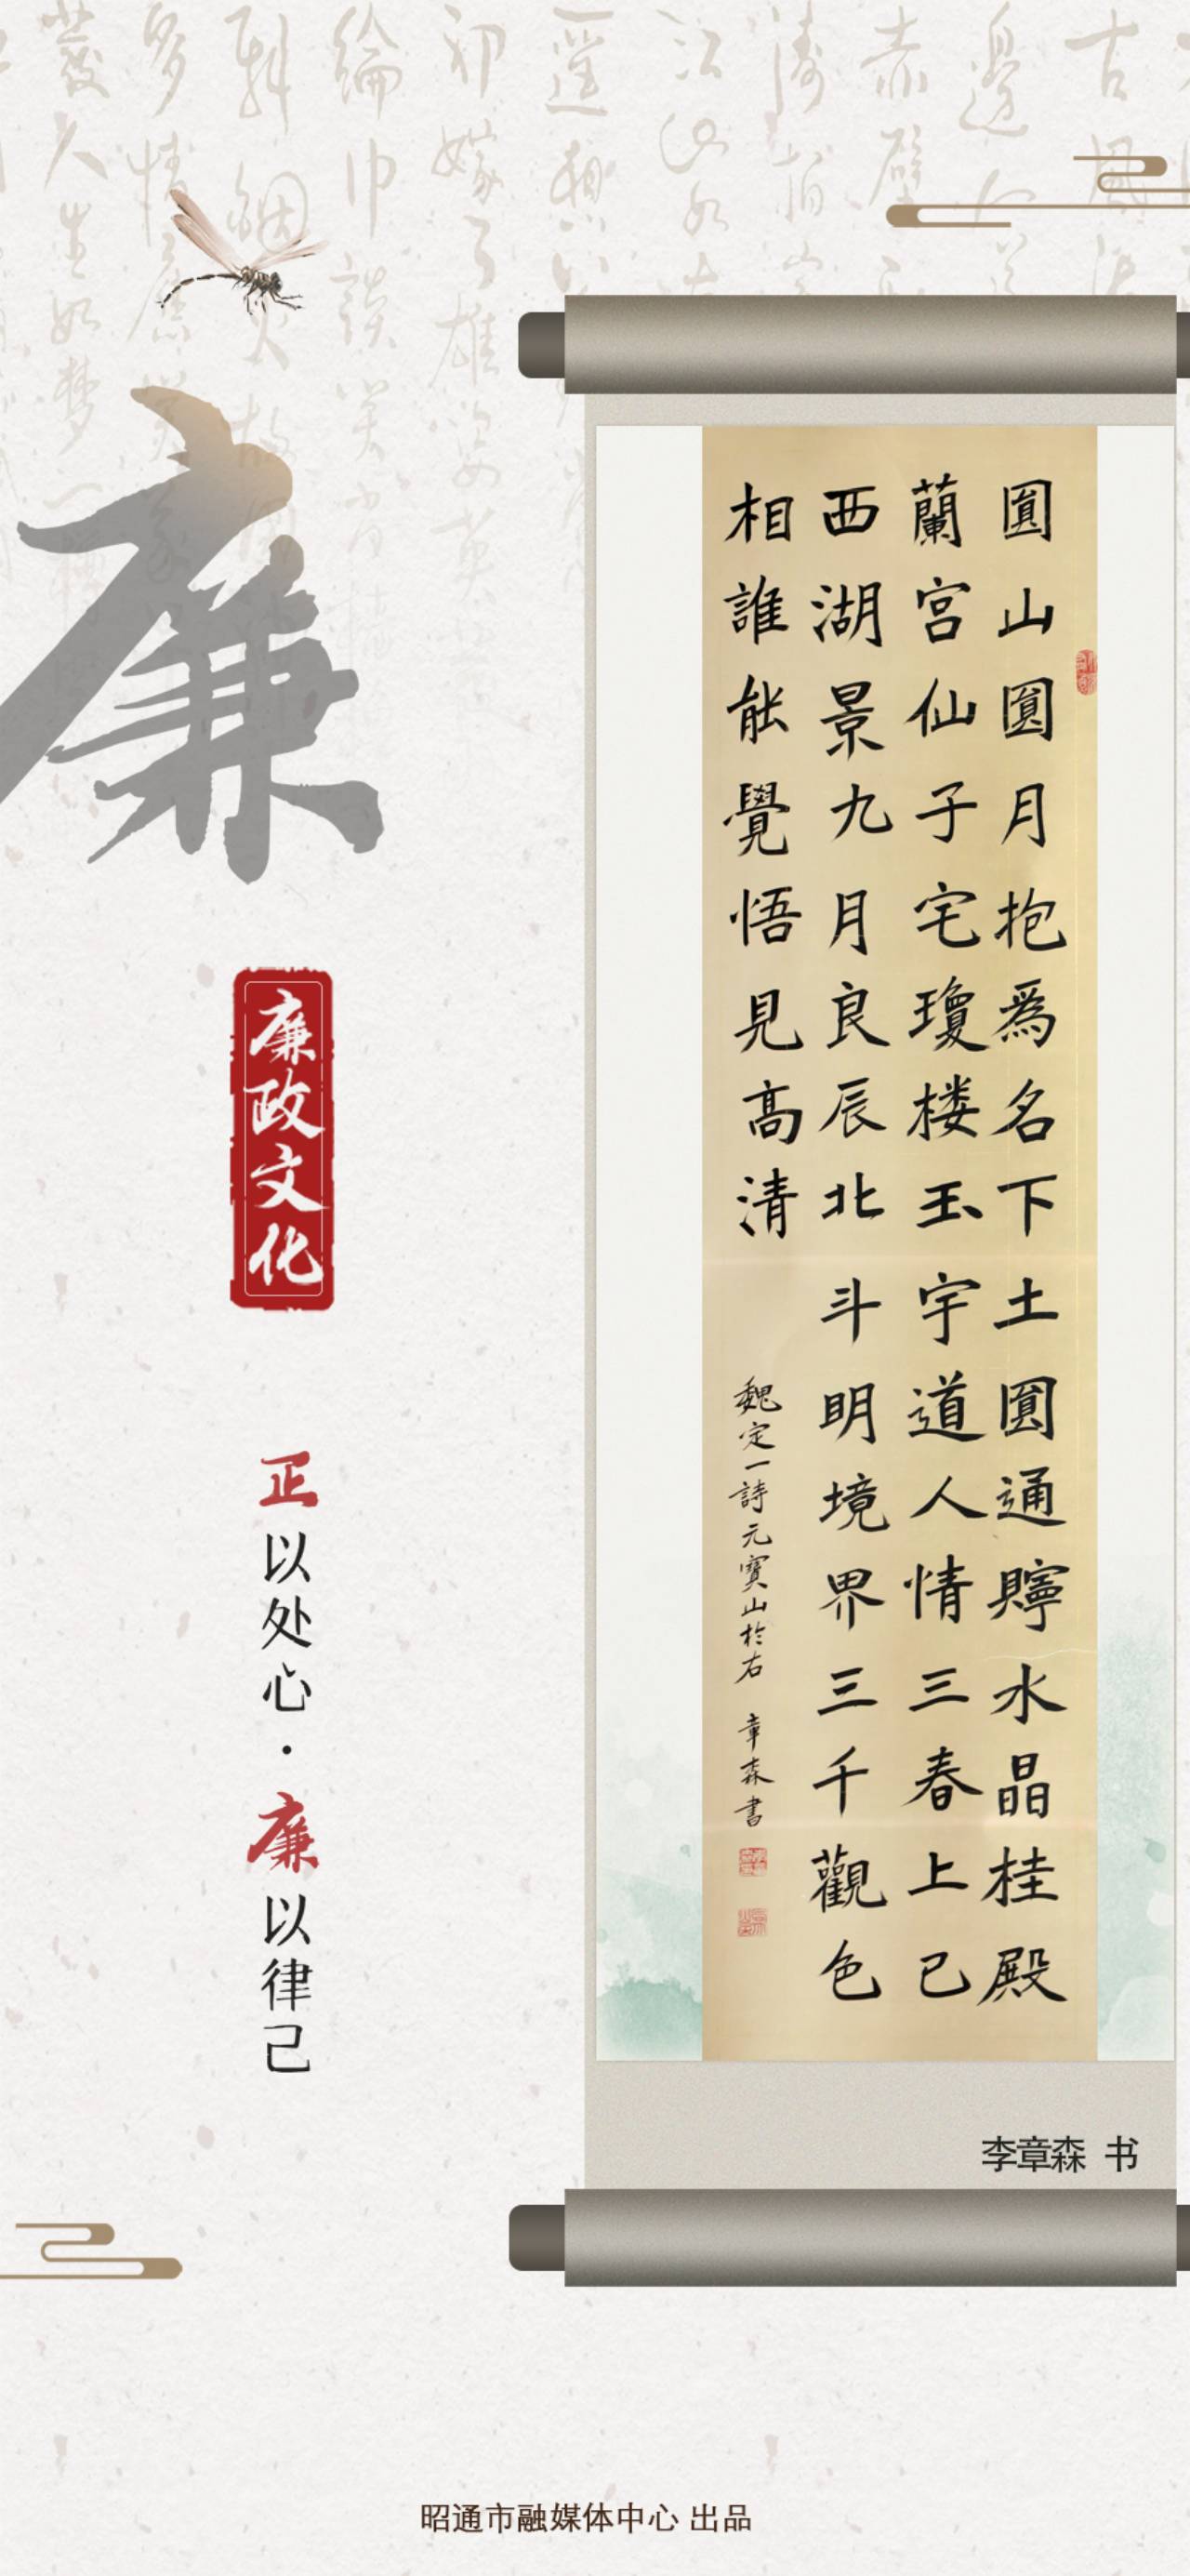 廉
廉政文化
正以处心·廉以律己
圓山圓月抱爲名下土圓通賯水晶桂殿
蘭宫仙子宅瓊楼玉宇道人情三春上已
西湖景九月良辰北斗明境界三千觀色
相誰能覺悟見高清
魏定一詩元寶山於右 章森書
李章森 书
昭通市融媒体中心 出品